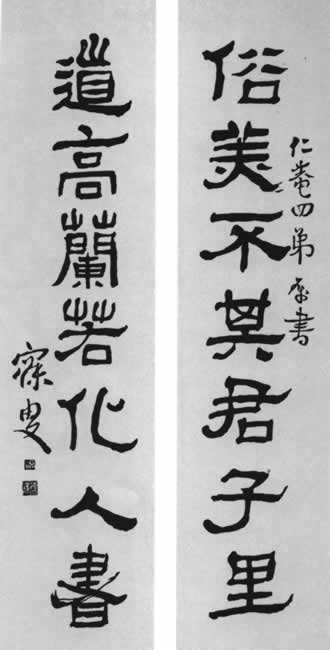 俗美不其君子里
仁菴四弟書
道高蘭若化人書
寐叟